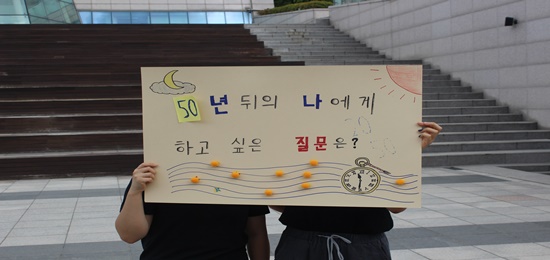 50년 뒤의 나에게
하고 싶은 질문은?